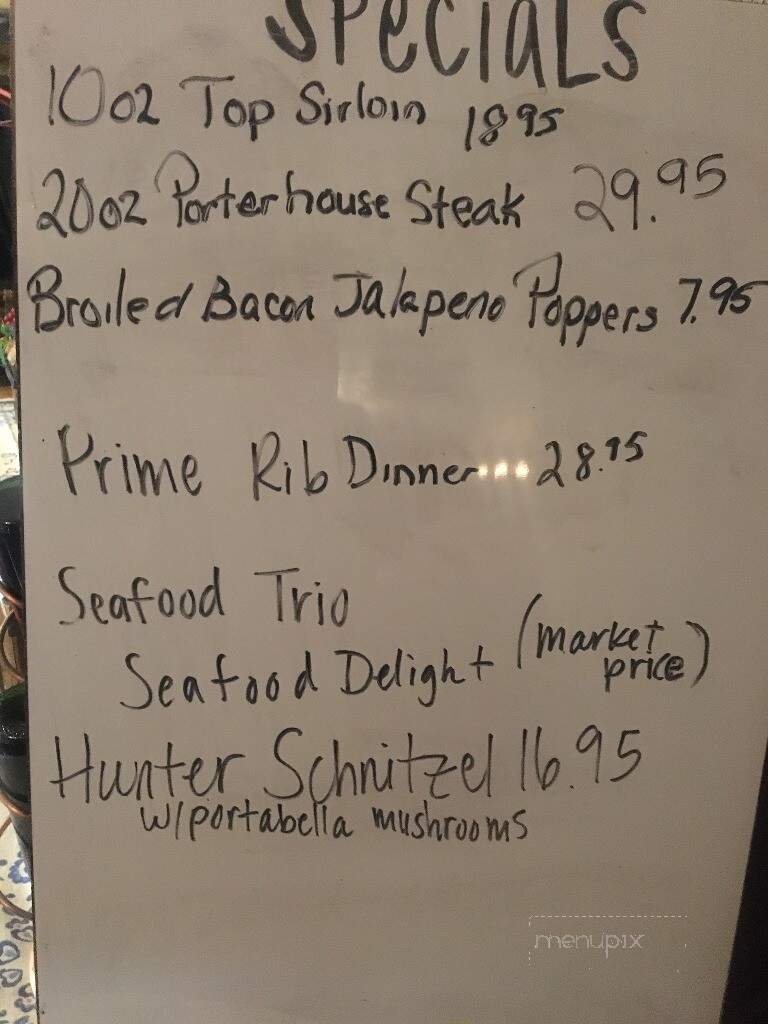 SPECIALS
10oz Top Sirloin 1895
20oz Porterhouse Steak 29.95
Broiled Bacon Jalapeno Poppers 7.95
Prime Rib Dinner... 28.95
Seafood Trio
Seafood Delight (market price)
Hunter Schnitzel 16.95
w/portabella mushrooms
menupix